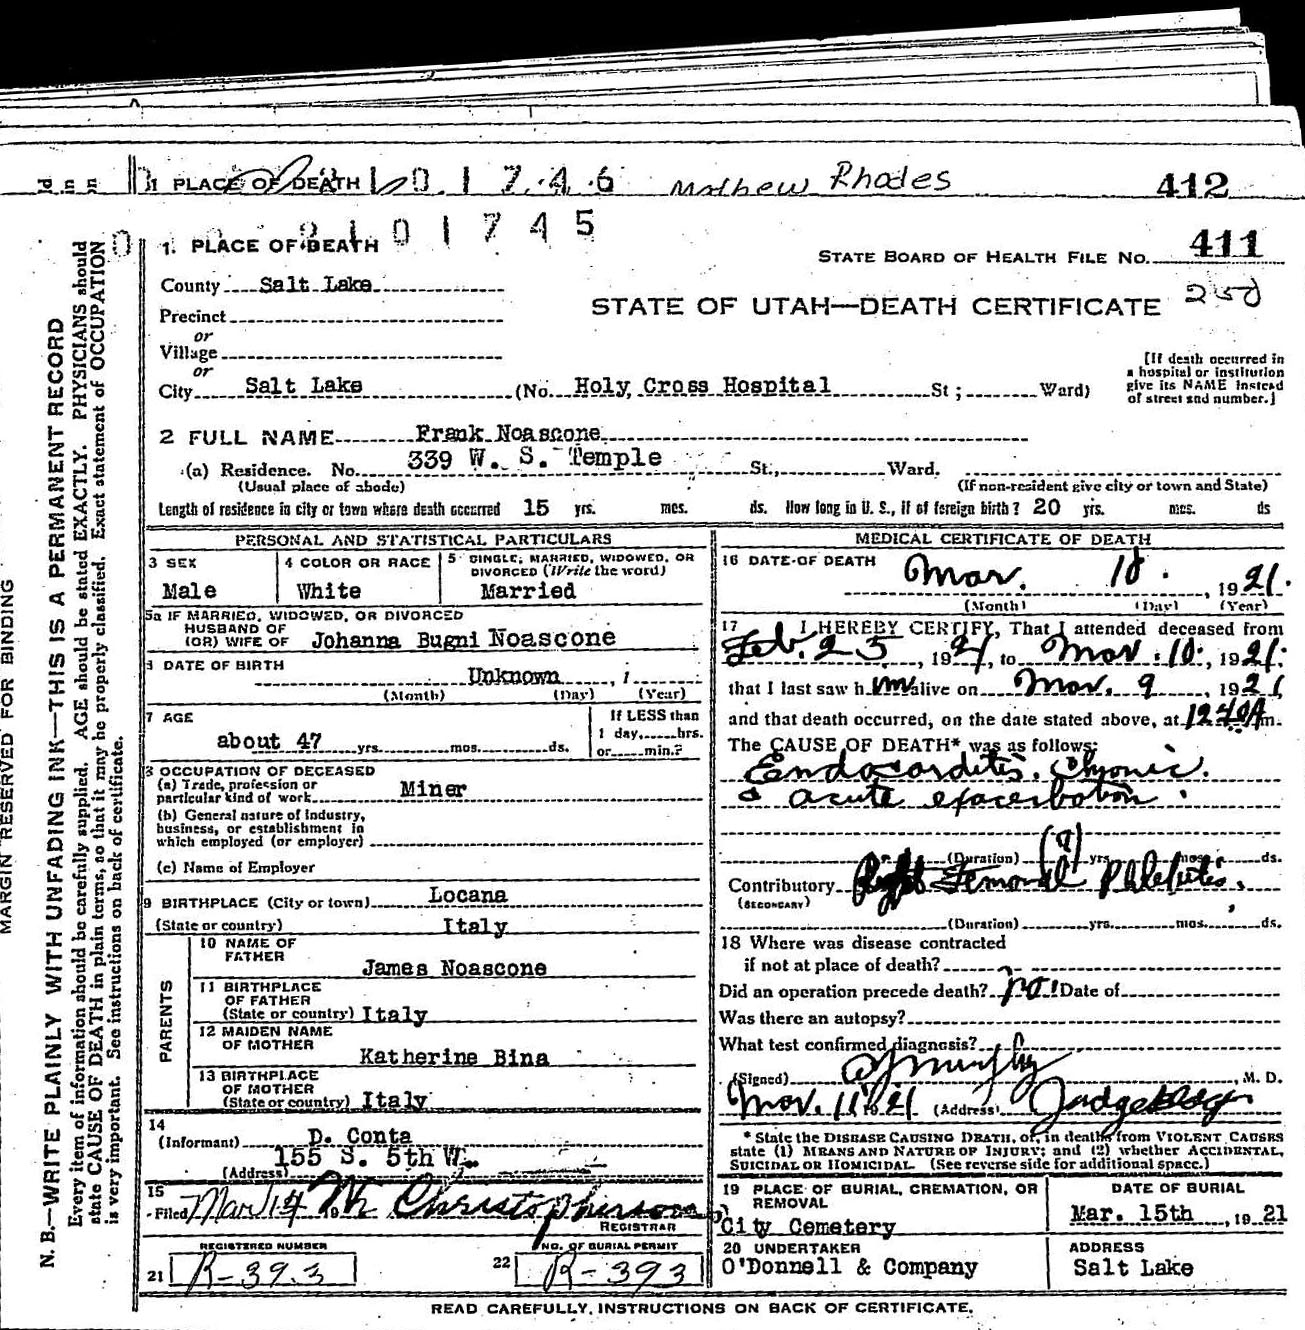 1 PLACE OF DEATH 101746 Mathew Rhodes 412
101745
1. PLACE OF DEATH
STATE BOARD OF HEALTH FILE NO. 411
County Salt Lake
STATE OF UTAH—DEATH CERTIFICATE
Precinct
or
Village
or
City Salt Lake (No. Holy Cross Hospital St; Ward)
[If death occurred in
a hospital or institution
give its NAME instead
of street and number.]
2 FULL NAME Frank Noascone
(a) Residence. No. 339 W. S. Temple St., Ward.
(Usual place of abode) (If non-resident give city or town and State)
Length of residence in city or town where death occurred 15 yrs. mos. ds. How long in U. S., if of foreign birth? 20 yrs. mos. ds
PERSONAL AND STATISTICAL PARTICULARS
3 SEX
Male
4 COLOR OR RACE
White
5 SINGLE, MARRIED, WIDOWED, OR
DIVORCED (Write the word)
Married
5a IF MARRIED, WIDOWED, OR DIVORCED
HUSBAND OF
(OR) WIFE OF Johanna Bugni Noascone
DATE OF BIRTH
Unknown
(Month) (Day) (Year)
7 AGE
about 47 yrs. mos. ds.
If LESS than
1 day, hrs.
or min.?
OCCUPATION OF DECEASED
(a) Trade, profession or
particular kind of work Miner
(b) General nature of industry,
business, or establishment in
which employed (or employer)
(c) Name of Employer
9 BIRTHPLACE (City or town) Locana
(State or country) Italy
PARENTS
10 NAME OF
FATHER
James Noascone
11 BIRTHPLACE
OF FATHER
(State or country) Italy
12 MAIDEN NAME
OF MOTHER
Katherine Bina
13 BIRTHPLACE
OF MOTHER
(State or country) Italy
14
(Informant) D. Conta
155 S. 5th W.
(Address)
15
Filed Mar 14 19 Christopherson
REGISTRAR
REGISTERED NUMBER
21 R-393
NO. OF BURIAL PERMIT
22 R-393
MEDICAL CERTIFICATE OF DEATH
16 DATE OF DEATH
Mar. 10. , 1921.
(Month) (Day) (Year)
17 I HEREBY CERTIFY, That I attended deceased from
Feb. 25, 1921, to Mar. 10, 1921.
that I last saw him alive on Mar. 9, 1921
and that death occurred, on the date stated above, at 1240A m.
The CAUSE OF DEATH* was as follows:
Endocarditis. Chronic.
acute exacerbation.
(Duration) (?) yrs. mos. ds.
Contributory Right Femoral Phlebitis.
(SECONDARY)
(Duration) yrs. mos. ds.
18 Where was disease contracted
if not at place of death?
Did an operation precede death? no! Date of
Was there an autopsy?
What test confirmed diagnosis?
(Signed) Murphy, M. D.
Mar. 11 1921 (Address) Judge Bldg
* State the DISEASE CAUSING DEATH, or, in deaths from VIOLENT CAUSES
state (1) MEANS AND NATURE OF INJURY; and (2) whether ACCIDENTAL,
SUICIDAL OR HOMICIDAL. (See reverse side for additional space.)
19 PLACE OF BURIAL, CREMATION, OR
REMOVAL
City Cemetery
DATE OF BURIAL
Mar. 15th, 1921
20 UNDERTAKER
O'Donnell & Company
ADDRESS
Salt Lake
READ CAREFULLY, INSTRUCTIONS ON BACK OF CERTIFICATE.
MARGIN RESERVED FOR BINDING
N. B.—WRITE PLAINLY WITH UNFADING INK—THIS IS A PERMANENT RECORD
Every item of information should be carefully supplied. AGE should be stated EXACTLY. PHYSICIANS should
state CAUSE OF DEATH in plain terms, so that it may be properly classified. Exact statement of OCCUPATION
is very important. See instructions on back of certificate.